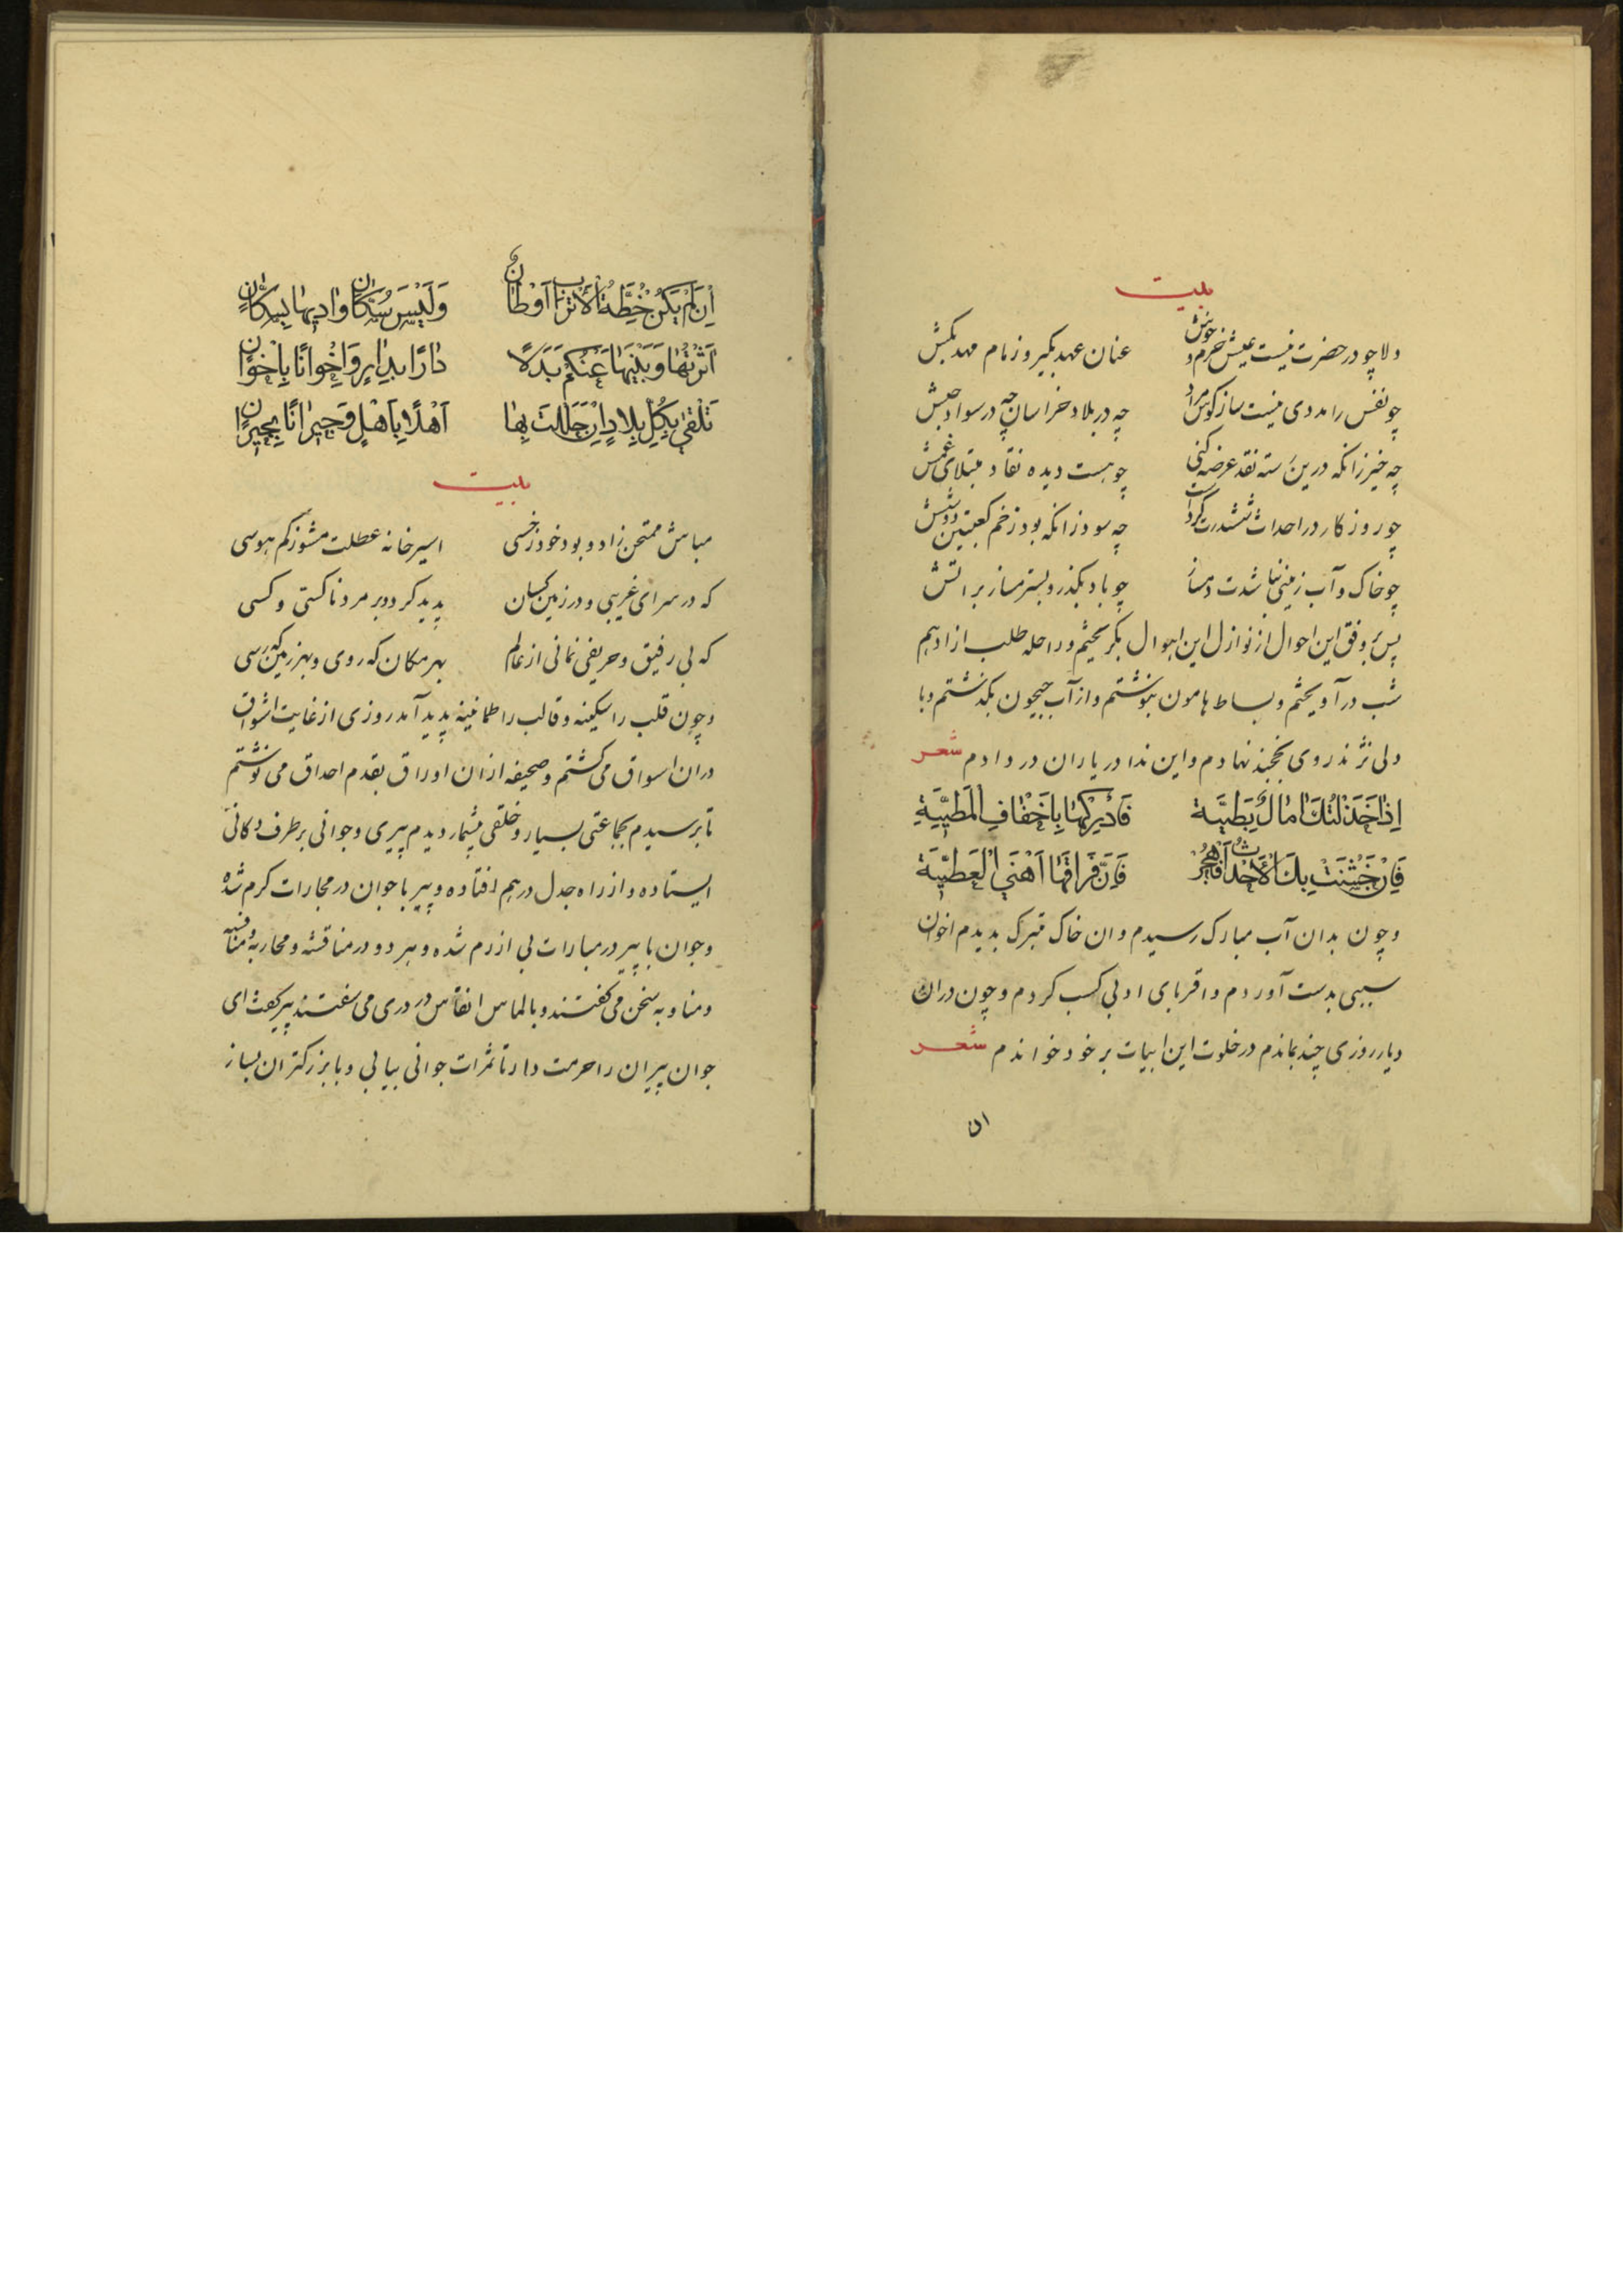 بیت
دلا چو در حضرت نیست عیش خرم و خوش عنان عهد بگیر و زمام مهد بکش
چو نفس را مددی نیست ساز کوس مراد چه در بلاد خراسان چه در سواد حبش
چه خیز زانکه درین رسته نقد عرضه کنی چو هست دیده نقاد مبتلای عمش
چو روزکار در احداث ششدرت کردست چه سود زانکه بود زخم کعبتین دو شش
چو خاک و آب زمینی نباشدت دمساز چو باد بکذر و بستر مساز بر اتش
پس بر وفق این احوال از نوازل این اهوال بکریختم و راحله طلب از ادهم
شب در آویختم و بساط هامون بنوشتم و از آب جیحون بکذشتم و با
دلی نژند روی بخجند نهادم و این ندا در یاران در دادم شعر
اِذا خَذَلَتْكَ اٰمالٌ بَطِيَّة فَاَدْرِكْهٰا بِاَخْفٰافِ الْمَطِيَّةِ
فَاِنْ خَشُنَتْ بِكَ الْاَحْدٰاثُ فَاهْجُرْ فَاِنَّ فَرٰاقَهٰا اَهْنَى الْعَطِيَّةِ
و چون بدان آب مبارک رسیدم و ان خاک متبرک بدیدم اخوان
سببی بدست آوردم و اقربای ادبی کسب کردم و چون دران
دیار روزی چند بماندم در خلوت این ابیات بر خود خواندم شعر
ان
اِنْ لَمْ يَكُنْ خِطَّةُ الْاَتْرٰابِ اَوْطٰانُ وَلَيْسَ سُكّٰانُ وٰاديهٰا بِسُكّٰانٍ
اٰثَرْتُهٰا وَبَنيهٰا عَنْكُمُ بَدَلًا دٰارًا بِدٰارٍ وَاِخْوٰانًا بِاِخْوٰانٍ
تَلْقٰى بِكُلِّ بِلٰادٍ اِنْ حَلَلْتَ بِهٰا اَهْلًا بِاَهْلٍ وَجيرٰانًا بِجيرٰانٍ
بیت
مباش ممتحن زاد و بود خود ز خسی اسیر خانه عطلت مشو ز کم هوسی
که در سرای غریبی و در زمین کسان پدید کردد بر مرد ناکسی و کسی
که بی رفیق و حریفی نمانی از عالم بهر مکان که روی و بهر زمین که رسی
و چون قلب را سکینه و قالب را طمانینه پدید آمد روزی از غایت اشواق
دران اسواق می کشتم و صحیفه از ان اوراق بقدم احداق می نوشتم
تا برسیدم بجماعتی بسیار و خلقی بیشمار دیدم پیری و جوانی بر طرف دکانی
ایستاده و از راه جدل در هم افتاده و پیر با جوان در مجارات کرم شده
و جوان با پیر در مبارات بی ازرم شده و هر دو در مناقشه و محاربه و منافسه
و مناوبه سخن می کفتند و بالماس انفاس در دری می سفتند پیر کفت ای
جوان پیران را حرمت دار تا ثمرات جوانی بیابی و با بزرکتران بساز